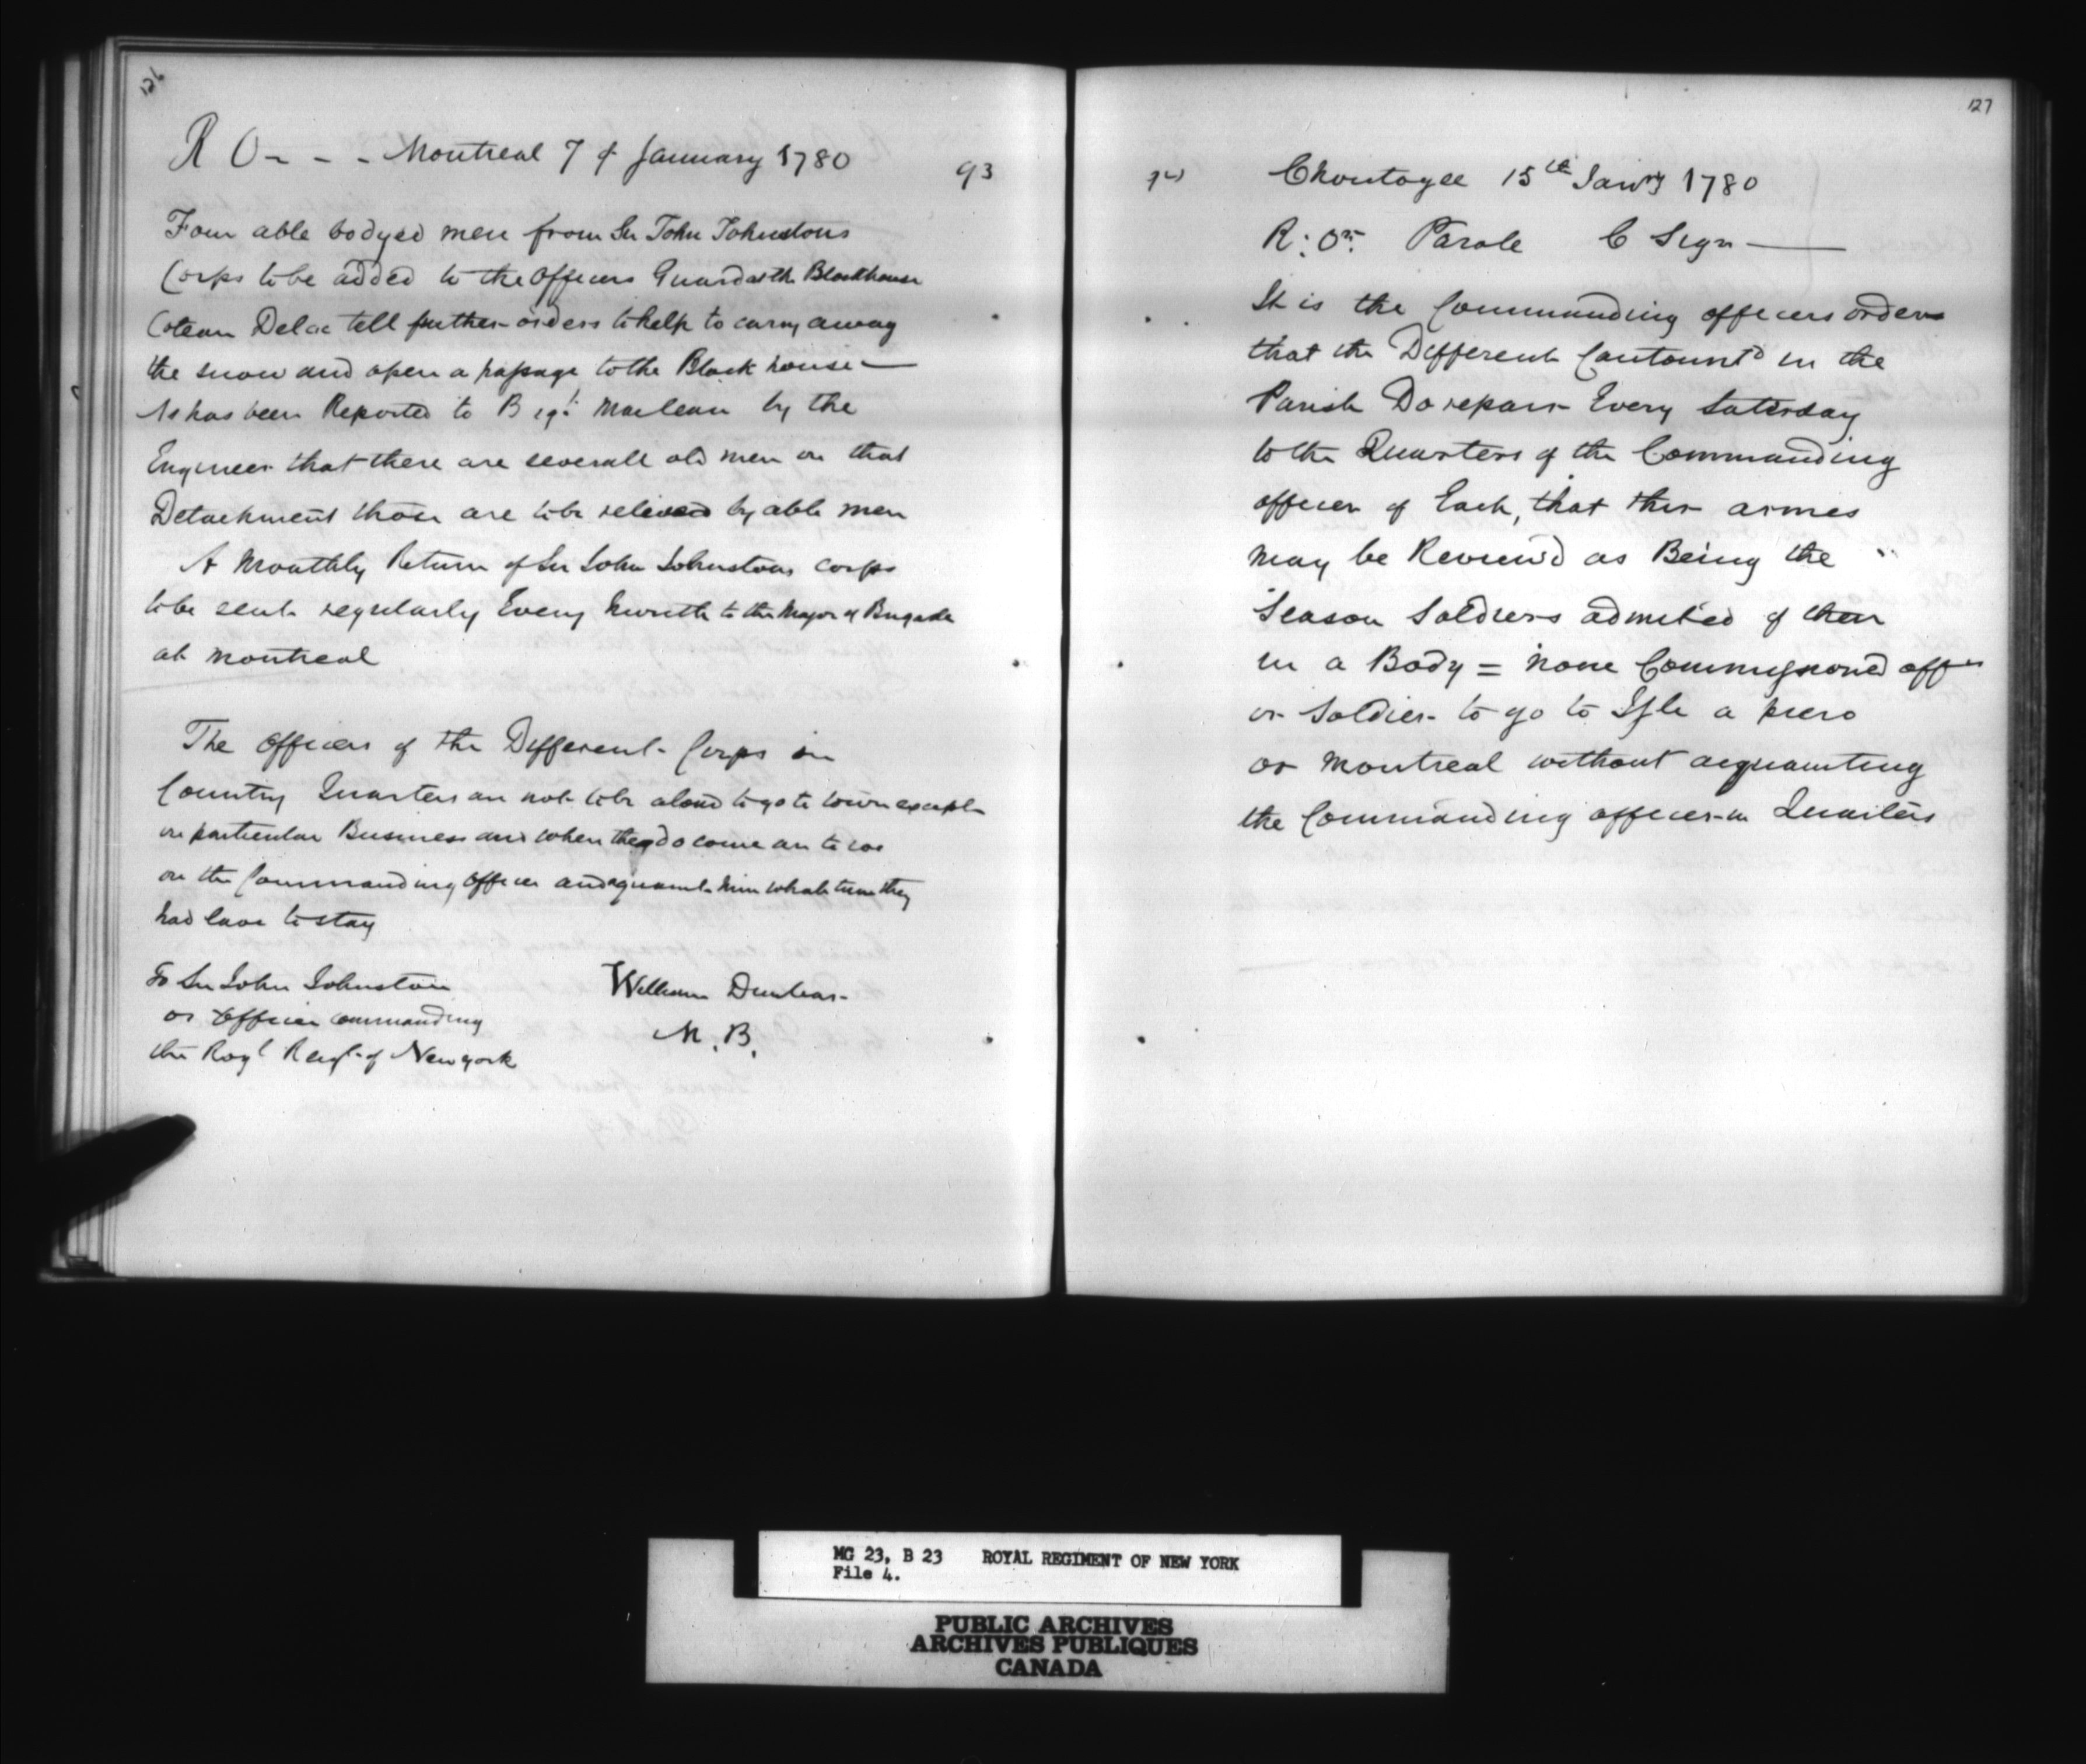 126
R O - - - Montreal 7 of January 1780
93
Four able bodyed men from Sir John Johnstons
Corps to be added to the Officers Guard at the Blockhouse
Coteau Delac tell further orders to help to carry away
the snow and open a passage to the Block house —
As has been Reported to Brigr Maclean by the
Engineer that there are severall old men on that
Detachment those are to be releived by able men
A Monthly Return of Sir John Johnstons corps
to be sent regularly Every Month to the Major of Brigade
at Montreal
The Officers of the Different Corps in
Country Quarters are not to be aloud to go to town except
on particular Business and when they do come are to
on the Commanding Officer and aquaint him what time they
had lave to stay
To Sir John Johnston
or Officer commanding
the Royl Regt of New york
William Dunbar
M. B.
127
94
Choutogee 15th Janry 1780
R: Ors: Parole C Sign —
It is the Commanding officers orders
that the Different Cantount in the
Parish Do repair Every Saterday
to the Quarters of the Commanding
officer of Each, that ther armes
may be Reviewd as Being the
Season Soldiers admited of their
in a Body = none Commissioned offrs
or Soldier to go to Isle a perro
or Montreal without aequainting
the Commanding officer in Quarters
MG 23, B 23 ROYAL REGIMENT OF NEW YORK
File 4.
PUBLIC ARCHIVES
ARCHIVES PUBLIQUES
CANADA